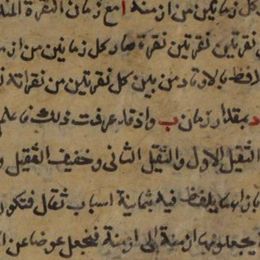 كل زمانين من ازمنة ا مع زمان النقرة
نقرتين نقرتين نقرة صار كل زمانين من از
من بين كل نقرتين من نقراته
د بمقدار زمان ب واذ قد عرفت ذلك فاعلم
الثقيل الاول والثقيل الثانى وخفيف الثقيل و
يلفظ فيه بثمانية اسباب ثقال فتكون
يجعلونها ازمنة الى ازمنة فنجعل عوضا عن